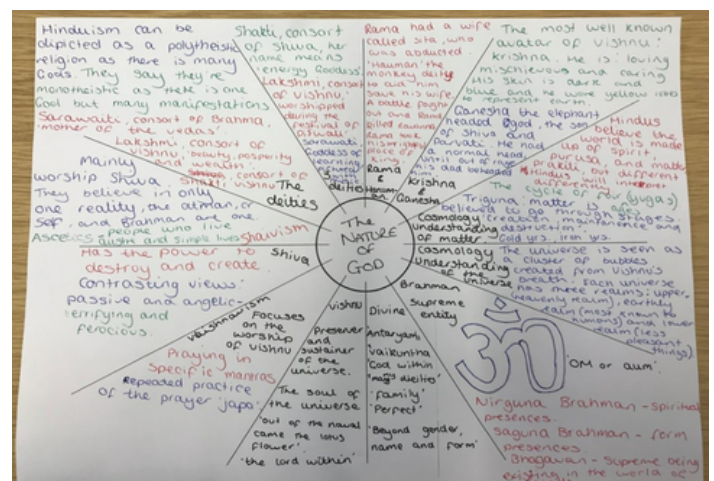 Hinduism can be
dipicted as a polytheistic
religion as there is many
Gods. They say they're
monotheistic as there is one
God but many manifestations
Saraswati, consort of Brahma,
'mother of the vedas'.
Lakshmi, consort of
vishnu, beauty, posperity
and wealth.
consort of
Shakti vishnu
The
deities
Shakti, consort
of Shiva, her
name means
'energy Goddess'.
Lakshmi, consort
of vishnu.
worshipped
during the
festival of
Diwali.
Sarawati,
Goddess of
learning
deities
Rama had a wife
called Sita, who
was abducted.
'Hanuman' the
monkey deity
to aid him
save his wife.
A battle fought
out and Rama
killed ravanna
Rama took
his rightful
place of
king.
Rama
&
Hanuman
The most well known
avatar of vishnu:
krishna. He is: loving
mischievous and caring
His skin is dark and
blue and he wore yellow
to represent earth.
Ganesha the elephant
headed god, the son
of shiva and
Parvati. He had
a normal head
until out of rage
his dad beheaded
him
krishna
&
Ganesha
Hindus
believe the
world is made
up of spirit
purusa, and matter
prakriti, but different
Hindus will interpret
differently
The cycle of four (yugas)
ages
Triguna: matter is
believed to go through 3 stages.
'creation, maintenence and
destruction'.
Gold yrs, iron yrs.
cosmology
understanding
of matter
The universe is seen as
a cluster of bubbles
created from vishnu's
breath. Each universe
has three realms: upper,
(heavenly realm), earthly
realm (most known to
humans) and lower
realm (less
pleasant
things).
cosmology
understanding
of the universe
Brahman
supreme
entity
ॐ
'OM or aum'
Nirguna Brahman - spiritual
presences
saguna Brahman - form
presences
Bhagavan - supreme being
existing in the world of
Divine
Antaryami
'vaikuntha'
'God within'
'family'
'Perfect'
'Beyond gender,
name and form'
vishnu
Preserver
and
sustainer
of the
universe.
The soul of
the universe
'out of the naval
came the lotus
flower'
'the lord within'
vaishnavism
Focuses
on the
worship
of vishnu
Praying in
specific mantras
Repeated practice
of the prayer 'japa'.
shiva
Has the power to
destroy and create.
Contrasting views:
passive and angelic-
terrifying and
ferocious.
shaivism
Mainly
worship Shiva.
They believe in only
one reality, the atman, or
self, and Brahman are one.
Ascetics - people who live
austre and simple lives
The
NATURE
OF
GOD